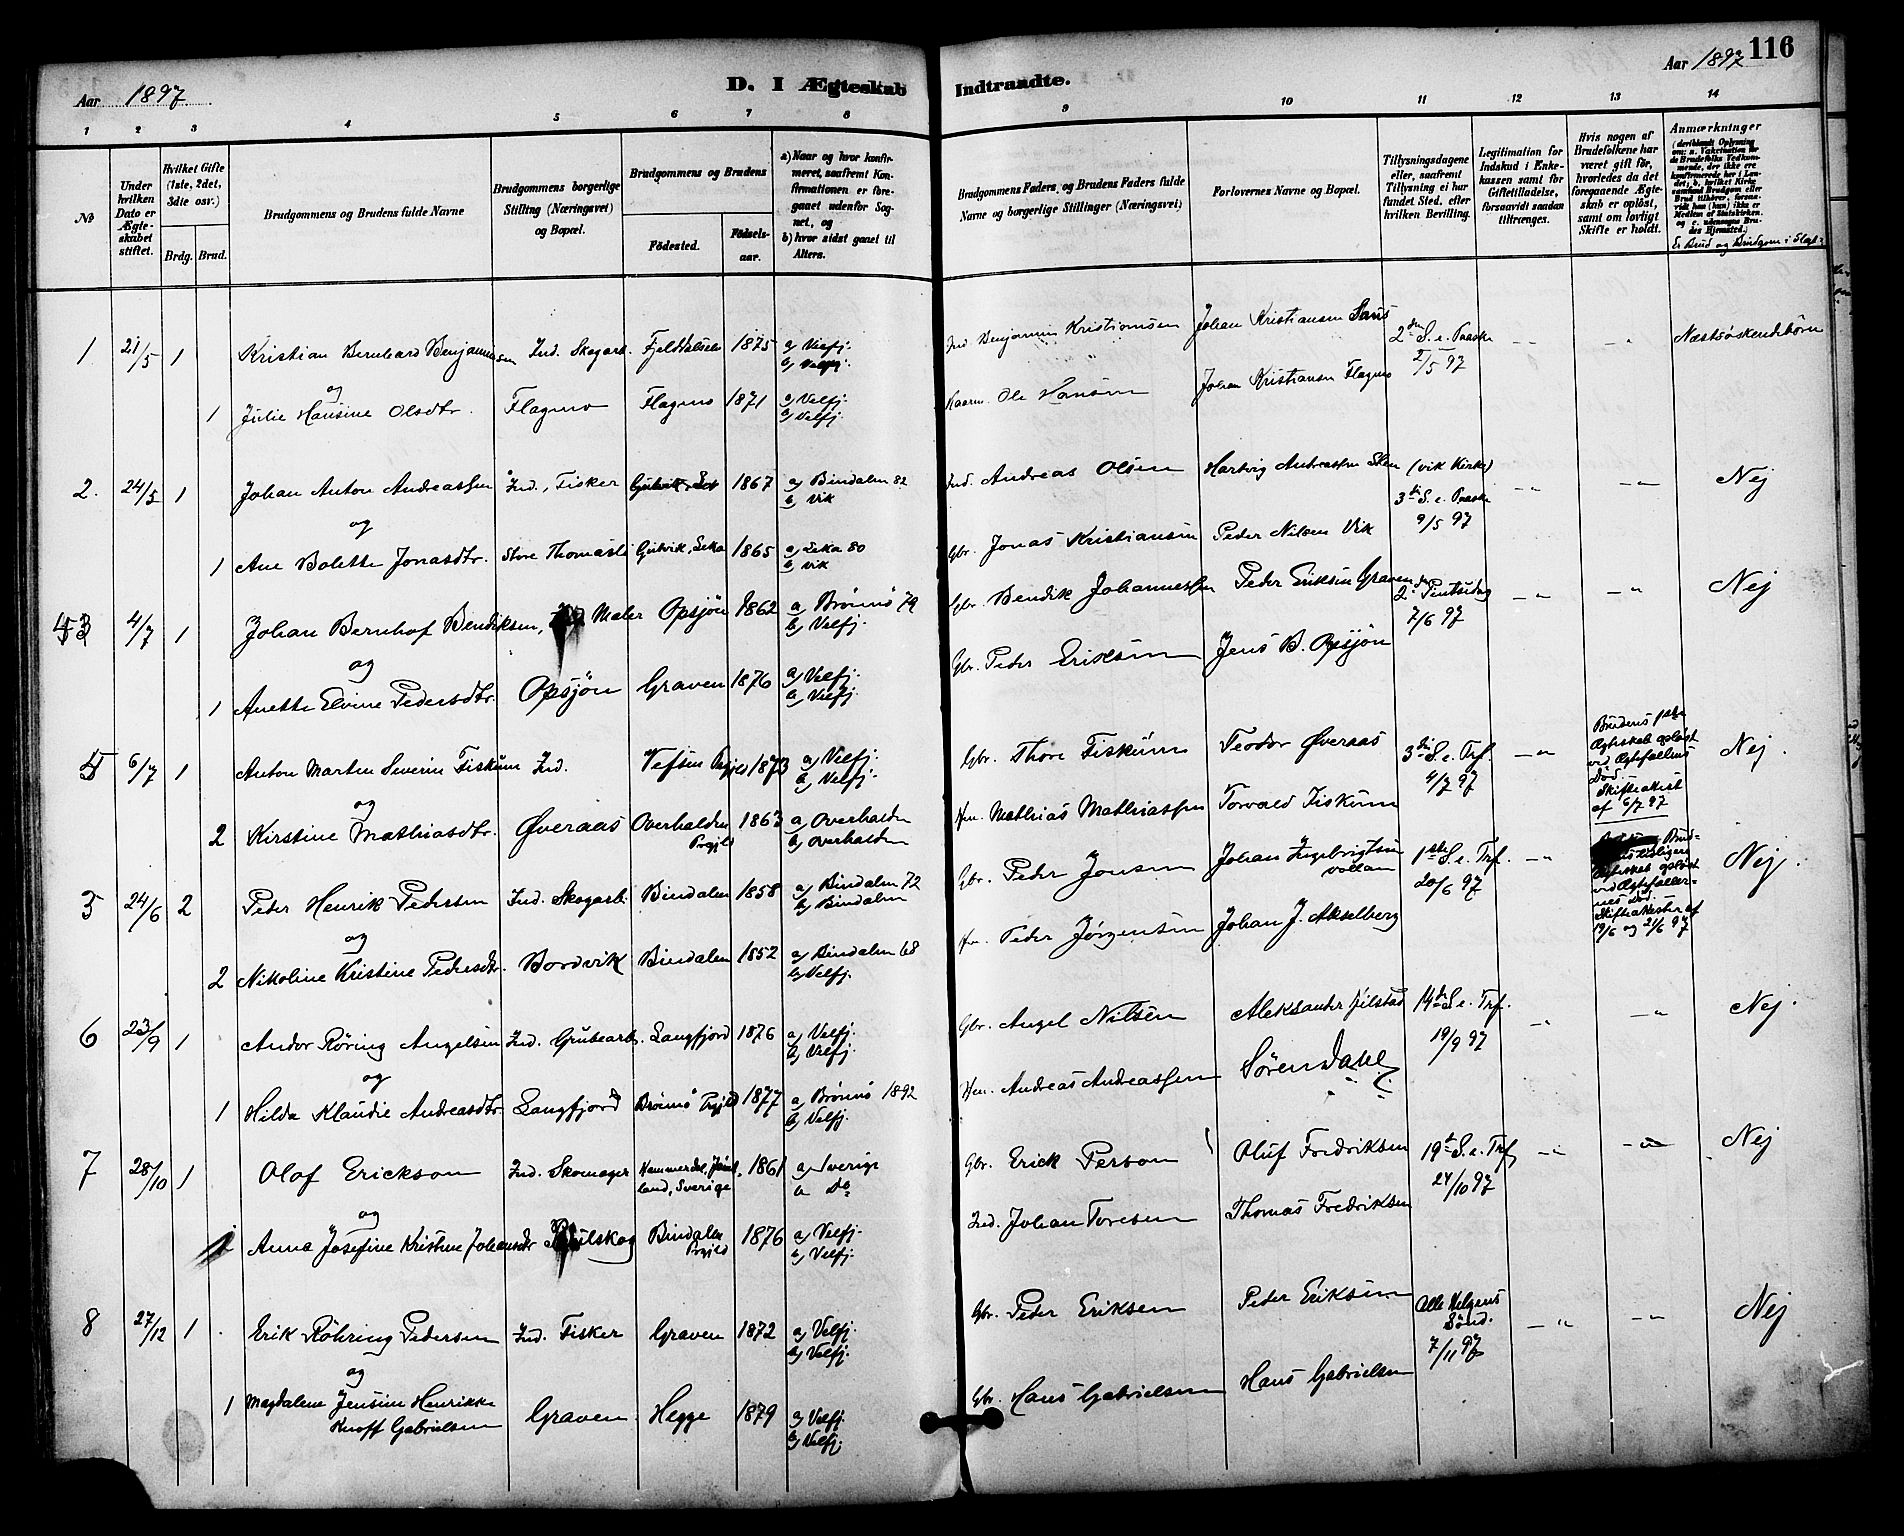 Aar 1897
D. I Ægteskab Indtraadte.
Aar 1897 116
1 2 3 4 5 6 7 8 9 10 11 12 13 14
No
Under hvilken Dato er Ægteskabet stiftet.
Hvilket Gifte (1ste, 2det, 3die osv.)
Brdg. Brud.
Brudgommens og Brudens fulde Navne
Brudgommens borgerlige Stilling (Næringsvei) og Bopæl.
Brudgommens og Brudens
Födested.
Födselsaar.
a) Naar og hvor konfirmeret, saafremt Konfirmationen er foregaaet udenfor Sognet, og
b) hvor sidst gaaet til Alters.
Brudgommens Faders og Brudens Faders fulde Navne og borgerlige Stillinger (Næringsvei)
Forlovernes Navne og Bopæl.
Tillysningsdagene eller, saafremt Tillysning ei har fundet Sted, efter hvilken Bevilling.
Legitimation for Indskud i Enkekassen samt for Giftetilladelse, forsaavidt saadan tiltrænges.
Hvis nogen af Brudefolkene har været gift för, hvorledes da det foregaaende Ægteskab er oplöst, samt om lovligt Skifte er holdt.
Anmærkninger
Er Brud og Brudgom i Slægt?
1. 21/5 1 Kristian Bernhard Benjaminsen Ind. Skogarb. 1875 a) Velfj. Ind. Benjamin Kristiansen Johan Kristiansen 2den S. e. Paaske -"- -"- Næstsøskendebörn
b) Velfj. 2/5 97
og
1 Julie Hansine Olsdtr. Flagmo Flagmo 1871 a) Velfj. Ole Hansen Johan Kristiansen Flagmo
b) Velfj.
2. 24/5 1 Johan Anton Andreassen Ind., Fisker 1867 a) Bindalen 82 Ind. Andreas Olsen Hartvig Andreassen (Vik Kirke) -"- -"- Nej
b) Vik 3die S. e. Paaske
og
9/5 97
1 Ane Bolette Jonasdtr. Store Thomasli Gutvik, Leka 1865 a) Leka 80 Gbr. Jonas Kristiansen Peder Nilsen Vik
b) Vik
3 4/7 1 Johan Bernhof Bendiksen, Maler Opsjön 1862 a) Brönnö 79 Gbr. Bendik Johannessen Peder Eriksen Graven 2den Pintsedag -"- -"- Nej
b) Velfj. 7/6 97
og
1 Anette Elvine Pedersdtr. Opsjön Graven 1876 a) Velfj. Gbr. Peder Eriksen Jens B. Opsjön
b) Velfj.
4 6/7 1 Anton Marten Severin Fiskum Ind. Vefsen Prgjld 1873 a) Velfj. Gbr. Thore Fiskum Teodor Øveraas 3die S. e. Trf. -"- Brudens 1ste Ægteskab opløst ved Ægtefællens Død. Skifteattest af 6/7 97 Nej.
b) Velfj. 4/7 97
og
2 Kirstine Mathiasdtr. Øveraas Overhalden Prgjld 1863 a) Overhalden Hm. Mathias Mathiassen Torvald Fiskum
b) Overhalden
5 24/6 2 Peder Henrik Pedersen Ind. Skogarb. Bindalen 1858 a) Bindalen 72 Gbr. Peder Jonsen Johan Ingebrigtsen 1ste S. e. Trf. -"- Ægteskab opløst ved Ægtefællernes Død. Skifteattester af 19/6 og 21/6 97 Nej.
b) Bindalen 20/6 97
og
2 Nikoline Kristine Pedersdtr. Bordvik Bindalen 1852 a) Bindalen 68 Peder Jörgensen Johan J. Akselberg
b) Velfj.
6 23/9 1 Andor Röring Angelsen Ind. Grubearb. Langfjord 1876 a) Velfj. Gbr. Angel Nilsen Aleksander 14de S. e. Trf. -"- -"- Nej.
b) Velfj. 19/9 97
og
1 Hilda Klaudie Andreasdtr Langfjord Brönnö Prgjld 1877 a) Brönnö 1892 Hm. Andreas Andreassen Sören Dahl
b) Velfj.
7 28/10 1 Olof Erickson Ind. Skomager Hammerdal, Jämtland, Sverige 1861 a) Sverige Gbr. Erick Person Oluf Fredriksen 19de S. e. Trf -"- -"- Nej
b Do 24/10 97
og
1 Anna Josefine Kristine Johansdtr Bindalen Prgjld 1876 a) Velfj. Ind. Johan Toresen Thomas Fredriksen
b) Velfj.
8 27/12 1 Erik Röhring Pedersen Ind. Fisker Graven 1872 a) Velfj. Gbr. Peder Eriksen Peder Eriksen Alle Helgens Sönd. -"- -"- Nej
b) Velfj. 7/11 97
og
1 Magdalene Jensine Henrikke Knoff Gabrielsen Graven Hegge 1879 a) Velfj. Gbr. Hans Gabrielsen Hans Gabrielsen
b) Velfj.